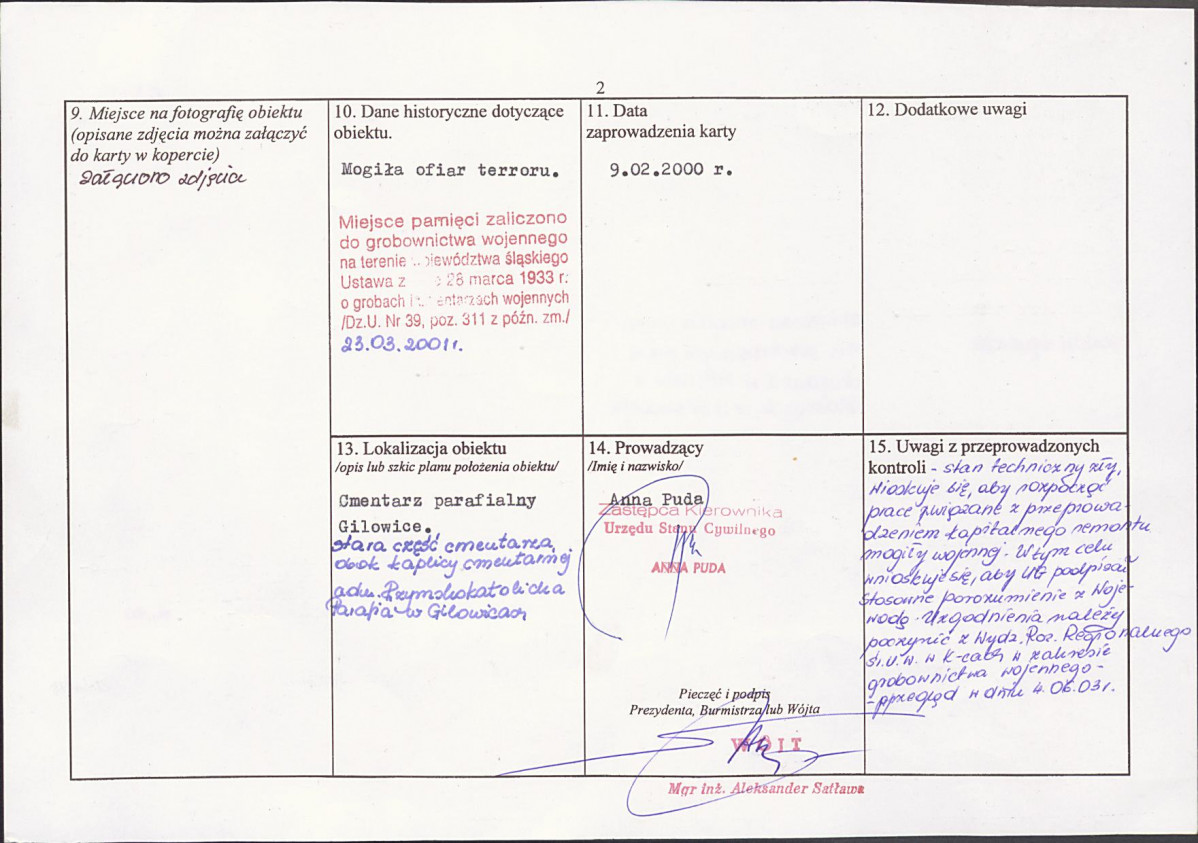 2
9. Miejsce na fotografię obiektu
(opisane zdjęcia można załączyć
do karty w kopercie)
Załączono zdjęcia
10. Dane historyczne dotyczące
obiektu.
Mogiła ofiar terroru.
Miejsce pamięci zaliczono
do grobownictwa wojennego
na terenie województwa śląskiego
Ustawa z 28 marca 1933 r.
o grobach i cmentarzach wojennych
/Dz.U. Nr 39, poz. 311 z późn. zm./
23.03.2001r.
11. Data
zaprowadzenia karty
9.02.2000 r.
12. Dodatkowe uwagi
13. Lokalizacja obiektu
/opis lub szkic planu położenia obiektu/
Cmentarz parafialny
Gilowice.
stara część cmentarza,
obok kaplicy cmentarnej
adm. Rzymskokatolicka
Parafia w Gilowicach
14. Prowadzący
/Imię i nazwisko/
Anna Puda
Zastępca Kierownika
Urzędu Stanu Cywilnego
ANNA PUDA
Pieczęć i podpis
Prezydenta, Burmistrza lub Wójta
WÓJT
Mgr inż. Aleksander Satława
15. Uwagi z przeprowadzonych
kontroli - stan techniczny zły,
wnioskuje się, aby rozpocząć
prace związane z przeprowa-
dzeniem kapitalnego remontu
mogiły wojennej. W tym celu
wnioskuje się, aby UG podpisał
stosowne porozumienie z Woje-
wodą. Uzgodnienia należy
poczynić z Wydz. Roz. Regionalnego
Śl.U.W. w K-cach w zakresie
grobownictwa wojennego -
- przegląd w dniu 4.06.03r.